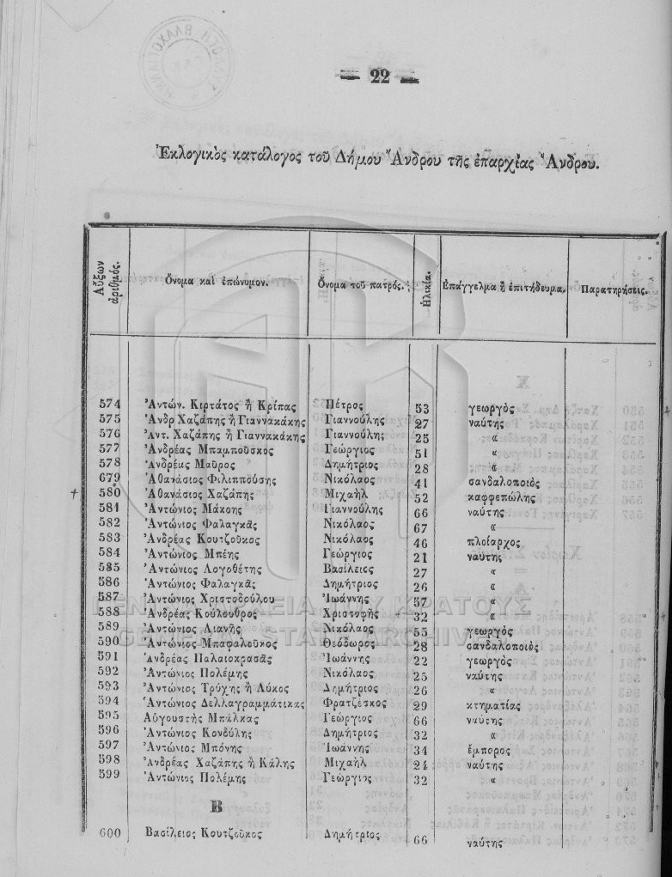 22
Ἐκλογικὸς κατάλογος τοῦ Δήμου Ἄνδρου τῆς ἐπαρχίας Ἄνδρου.
Αὔξων ἀριθμός. Ὄνομα καὶ ἐπώνυμον. Ὄνομα τοῦ πατρός. Ἡλικία. Ἐπάγγελμα ἢ ἐπιτήδευμα. Παρατηρήσεις.
574 Ἀντών. Κιρτάτος ἢ Κρίπας Πέτρος 53 γεωργὸς
575 Ἀνδρ Χαζάπης ἢ Γιαννακάκης Γιαννούλης 27 ναύτης
576 Ἀντ. Χαζάπης ἢ Γιαννακάκης Γιαννούλης 25 «
577 Ἀνδρέας Μπαμποῦσκος Γεώργιος 51 «
578 Ἀνδρέας Μαῦρος Δημήτριος 28 «
679 Ἀθανάσιος Φιλιππούσης Νικόλαος 41 σανδαλοποιὸς
580 Ἀθανάσιος Χαζάπης Μιχαὴλ 52 καφφεπώλης
581 Ἀντώνιος Μάκοης Γιαννούλης 66 ναύτης
582 Ἀντώνιος Φαλαγκᾶς Νικόλαος 67 «
583 Ἀνδρέας Κουτζοῦκος Νικόλαος 46 πλοίαρχος
584 Ἀντώνιος Μπέης Γεώργιος 21 ναύτης
585 Ἀντώνιος Λογοθέτης Βασίλειος 27 «
586 Ἀντώνιος Φαλαγκᾶς Δημήτριος 26 «
587 Ἀντώνιος Χριστοδούλου Ἰωάννης 57 «
588 Ἀνδρέας Κούλουθρος Χριστοφῆς 32 «
589 Ἀντώνιος Λιανῆς Νικόλαος 55 γεωργὸς
590 Ἀντώνιος Μπαφαλοῦκος Θεόδωρος 28 σανδαλοποιὸς
591 Ἀνδρέας Παλαιοκρασᾶς Ἰωάννης 22 γεωργὸς
592 Ἀντώνιος Πολέμης Νικόλαος 25 ναύτης
593 Ἀντώνιος Τρύχης ἢ Λύκος Δημήτριος 26 «
594 Ἀντώνιος Δελλαγραμμάτικας Φρατζέσκος 29 κτηματίας
595 Αὐγουστὴς Μπάλκας Γεώργιος 66 ναύτης
596 Ἀντώνιος Κονδύλης Δημήτριος 32 «
597 Ἀντώνιος Μπόνης Ἰωάννης 34 ἔμπορος
598 Ἀνδρέας Χαζάπης ἢ Κάλης Μιχαὴλ 24 ναύτης
599 Ἀντώνιος Πολέμης Γεώργιος 32 «
Β
600 Βασίλειος Κουτζοῦκος Δημήτριος 66 ναύτης